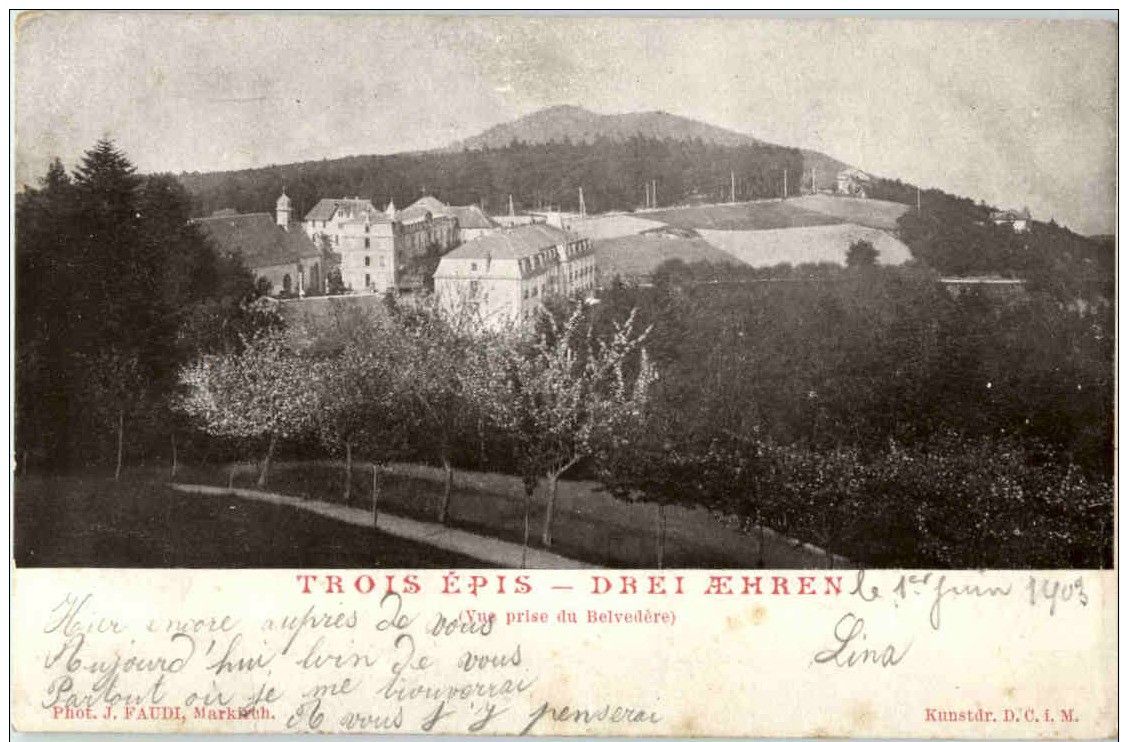 TROIS ÉPIS – DREI ÆHREN le 1er Juin 1903
(Vue prise du Belvedère)
Hier encore auprès de vous
Aujourd'hui loin de vous
Partout où je me trouverai
A vous j'y penserai
Lina
Phot. J. FAUDI, Markirch.
Kunstdr. D. C. i. M.